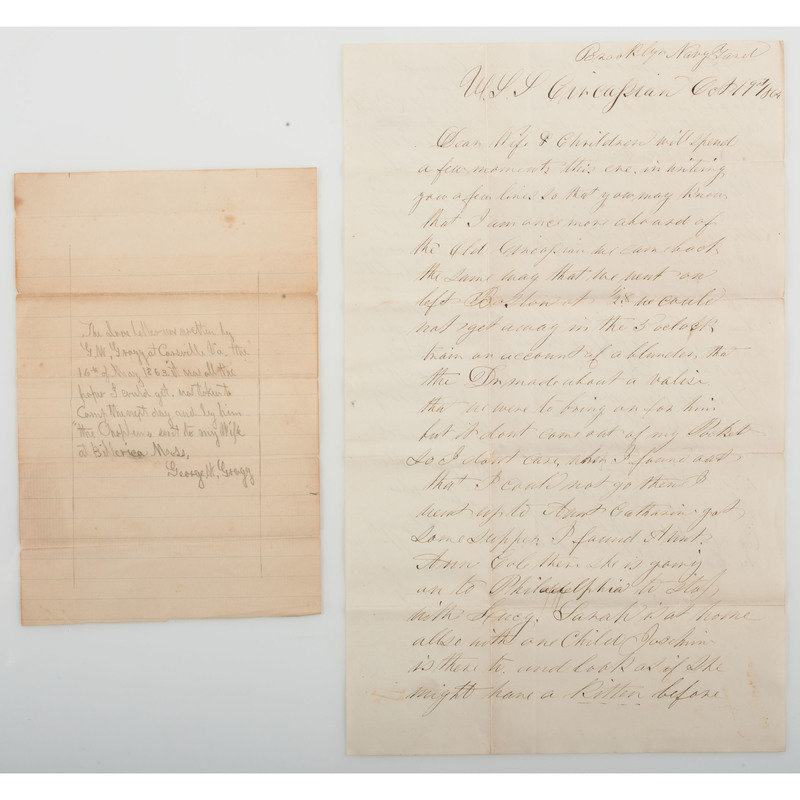 The above letter was written by
G.W. Gragg at Carsville Va. the
16th of May 1863. It was all the
paper I could get. was taken to
Camp the next day and by him
the Chaplin sent to my Wife
at Billerica Mass.
George W. Gragg
Brooklyn Navy Yard
U.S.S Circassian Oct 19th 1864
Dear Wife & Children will spend
a few moments this eve. in writing
you a few lines so that you may know
that I am once more aboard of
the Old Circassian we came back
the same way that we went on
left Boston at we could
not get away in the 5 oclock
train on account of a blunder that
the Dr. made about a valise
that we were to bring on for him
but it dont come out of my Pocket
So I dont care, when I found out
that I could not go then I
went up to Aunt Catharin got
some supper I found Aunt
Ann Cole there She is going
on to Philadelphia to Stop
with Lucy. Sarah is at home
allso with one Child Josephin
is there to, and look as if She
might have a Kitten before